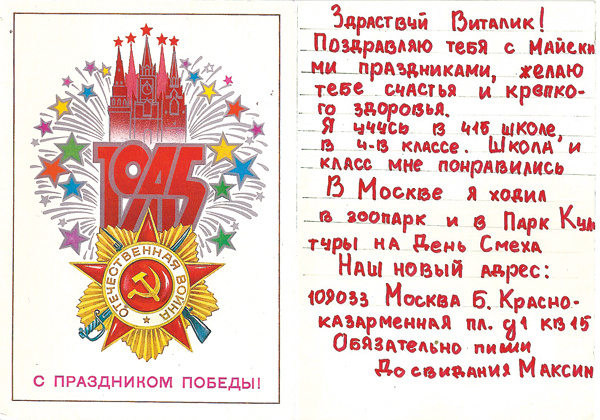 1945
ОТЕЧЕСТВЕННАЯ ВОЙНА
С ПРАЗДНИКОМ ПОБЕДЫ!
Здраствуй Виталик!
Поздравляю тебя с майски
ми праздниками, желаю
тебе счастья и крепко-
го здоровья.
Я учусь в 415 школе,
в 4-в классе. Школа и
класс мне понравились
В Москве я ходил
в зоопарк и в Парк Куль
туры на День Смеха
Наш новый адрес:
109033 Москва Б. Красно-
казарменная пл. д1 кв15
Обязательно пиши
До свидания Максим